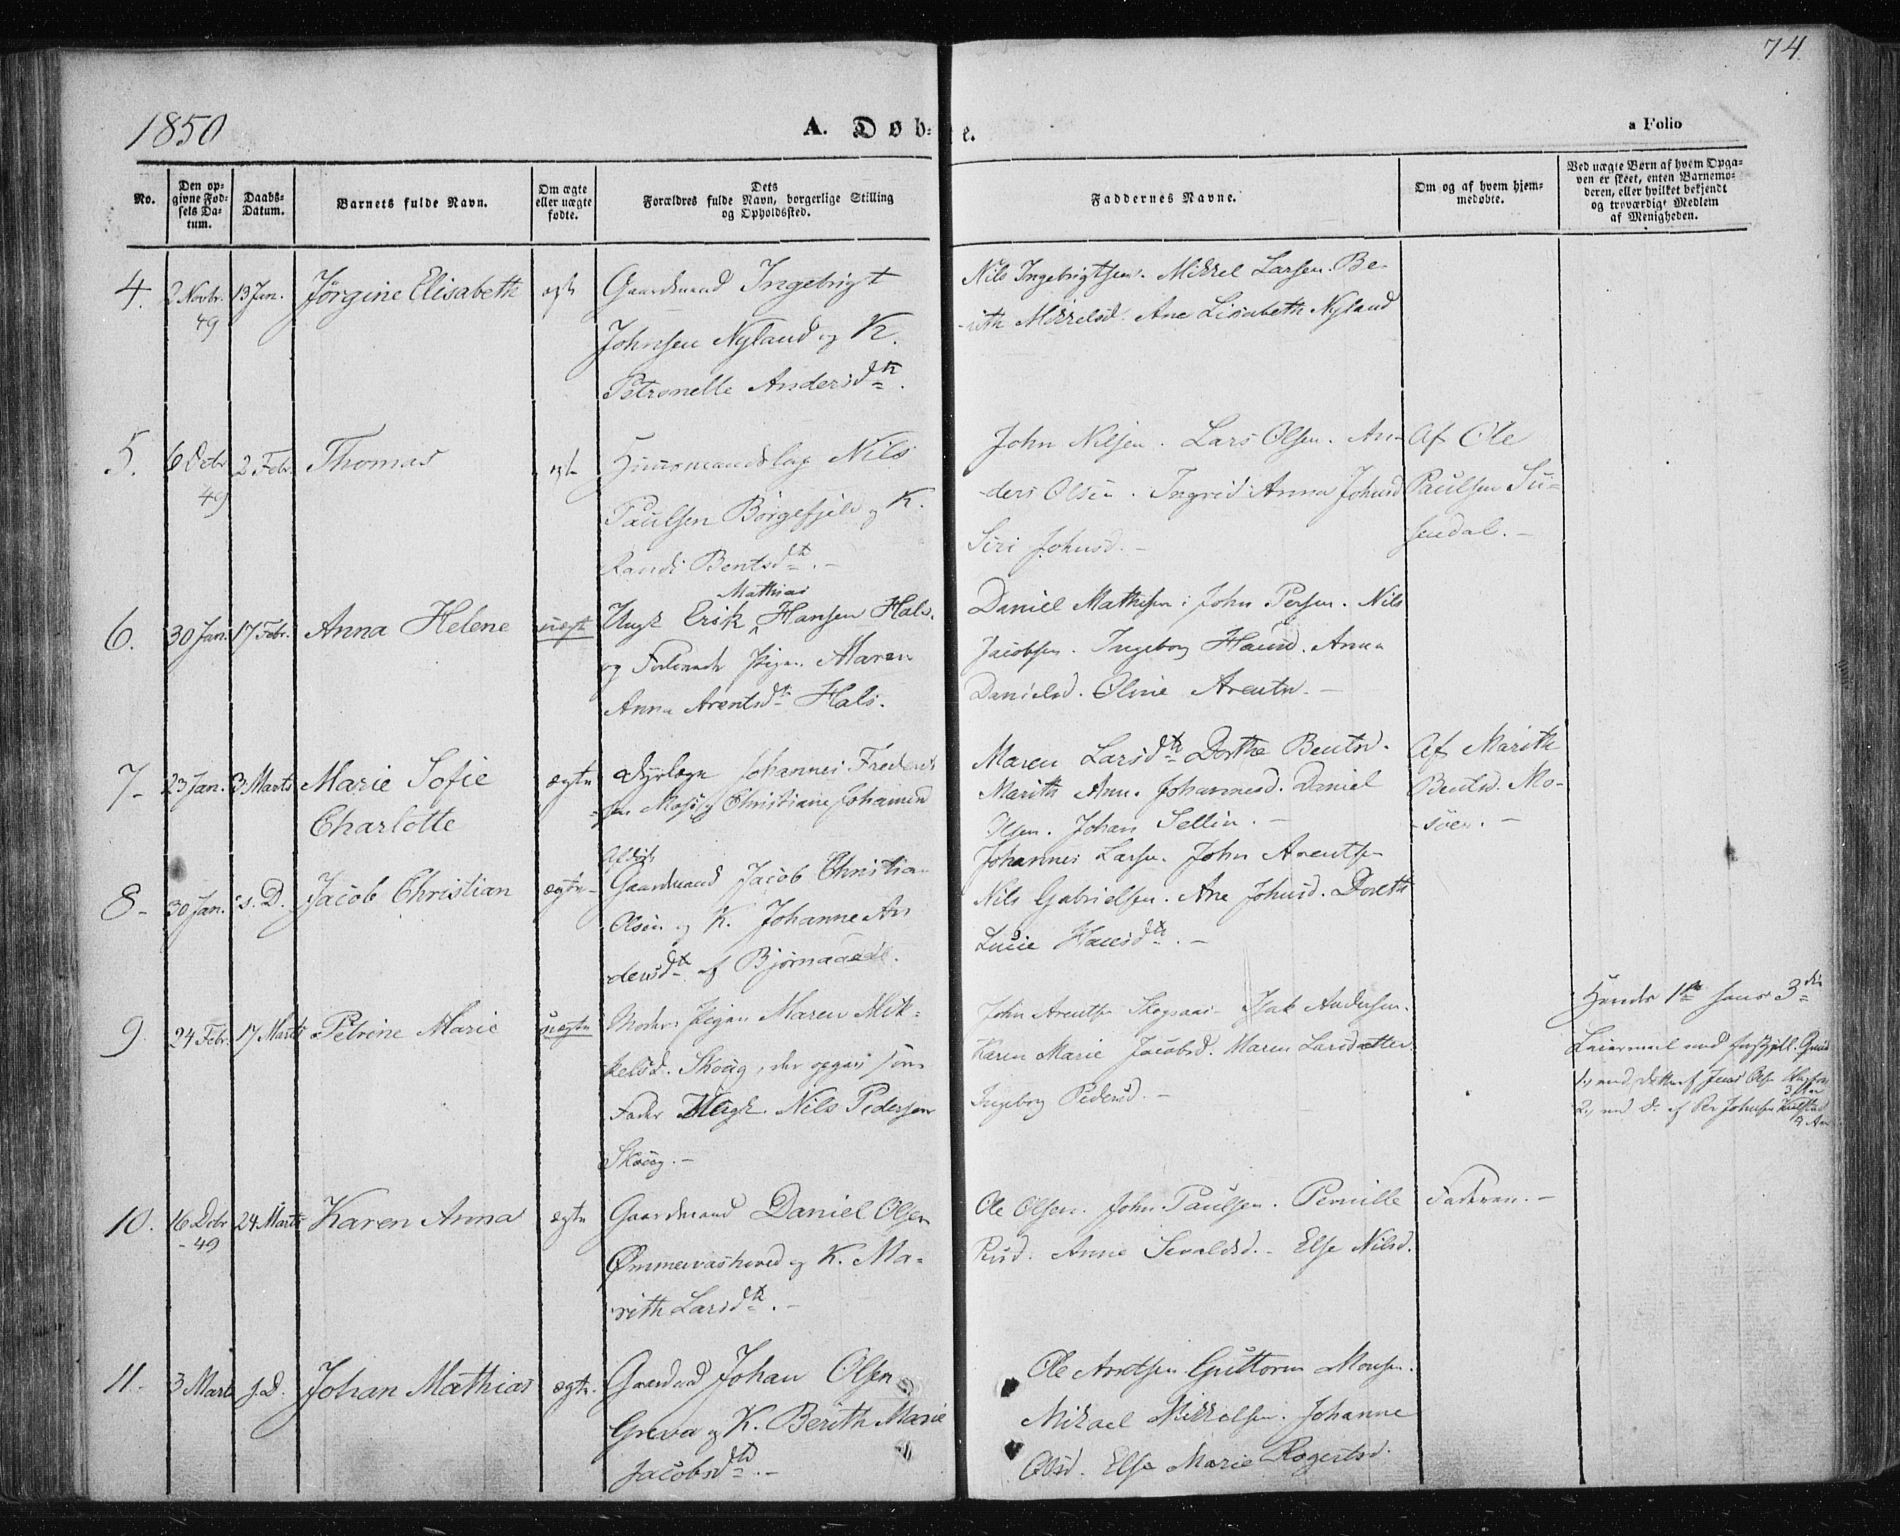 74.
1850
A. Døb=
e.
a Folio
No.
Den op=
givne Fød=
sels Da=
tum.
Daabs=
Datum.
Barnets fulde Navn.
Om ægte
eller uægte
fødte.
Dets
Forældres fulde Navn, borgerlige Stilling
og Opholdssted.
Faddernes Navne.
Om og af hvem hjem=
medøbte.
Ved uægte Børn af hvem Opga=
ven er skeet, enten Barnemo=
deren, eller hvilket bekjendt
og troværdigt Medlem
af Menigheden.
4. 2 Novbr. 13 Jan. Jørgine Elisabeth ægte Gaardmand Ingebrigt
49
Johnsen Nyland og K.
Petronelle Andersd.
Nils Ingebrigtsen. Mikkel Larsen. Be-
-rith Mikkelsd. Ane Lisabeth Nyland
5. 6 Octr 2 Febr. Thomas Nils
49
Paulsen Børgefjeld og K.
Randi Bentsd. -
John Nilsen. Lars Olsen. An-
-ders Olsen. Ingrid Anna Johnsd
Siri Johnsd. -
Af Ole
Paulsen Su-
sendal. -
6. 30 Jan. 17 Febr. Anna Helene uægte Ungk Erik Mathias Hansen Hals.
og Pigen Maren
Anna Arentsd. Hals.
Daniel Mathisen. John Persen. Nils
Jacobsen. Ingeborg Hansd. Anna
Danielsd. Oline Arentsd. -
7- 23 Jan. 3 Marts Marie Sofie ægte Johannes
Charlotte
Christiane
Maren Larsd. Dorthe Bentsd.
Marith Ann. Johannesd. Daniel
Olsen. Johan Sellin. -
Af Marith
Bentsd. Mo-
-søen. -
8- 30 Jan. s. D. Jacob Christian ægte Afdøde
Gaardmand Jacob Christian
Olsen og K. Johanne An
dersd. af Bjørnaadal.
Johannes Larsen. John Arentsen
Nils Gabrielsen. Ane Johnsd. Doreth
Lucie Hansd. -
9. 24 Febr. 17 Marts Petrine Marie uægte Moder: Pigen Maren Mik-
kelsd. Skoug, der opgav som
Fader Ungk. Nils Pedersen
Skoug. -
John Arentsen Skogsaas Isak Andersen.
Karen Marie Jacobsd. Maren Larsdatter.
Ingeborg Pedersd. -
Hendes 1ste hans 3die
Leiermaal
10. 16 Decbr 24 Marts Karen Anna ægte Gaardmand Daniel Olsen
- 49
og K. Ma-
rith Larsd. -
Ole Olsen. John Paulsen. Pernille
Anne Sevaldsd. - Else Nilsd.
Faderen. -
11. 3 Mart s. D. Johan Mathias ægte. Gaardmd Johan Olsen
og K. Berith Marie
Jacobsd. -
Ole Arntsen Guttorm Monsen.
Mikael Mikkelsen. Johanne
Olsd. Else Marie Rogertsd.